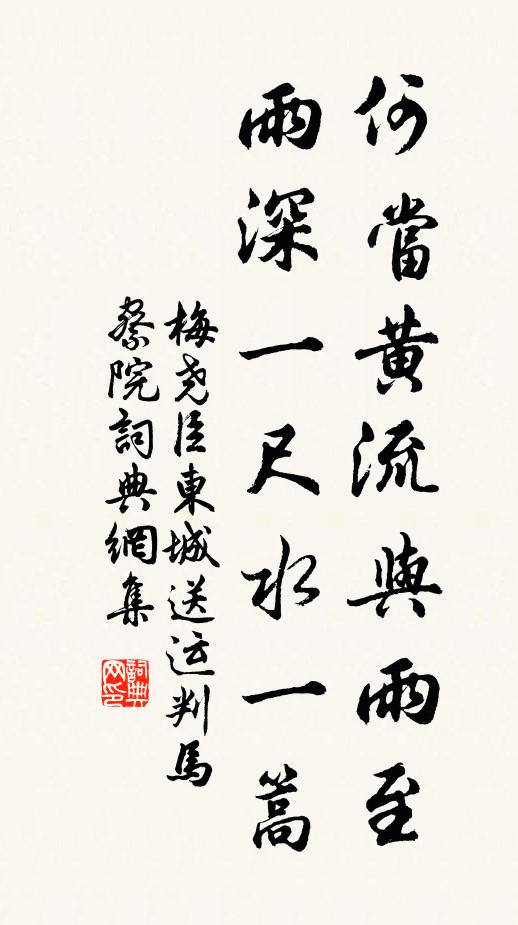 何當黃流與雨至
雨深一尺水一篙
梅尧臣東城送运判馬
察院詞典網集
詞典网印